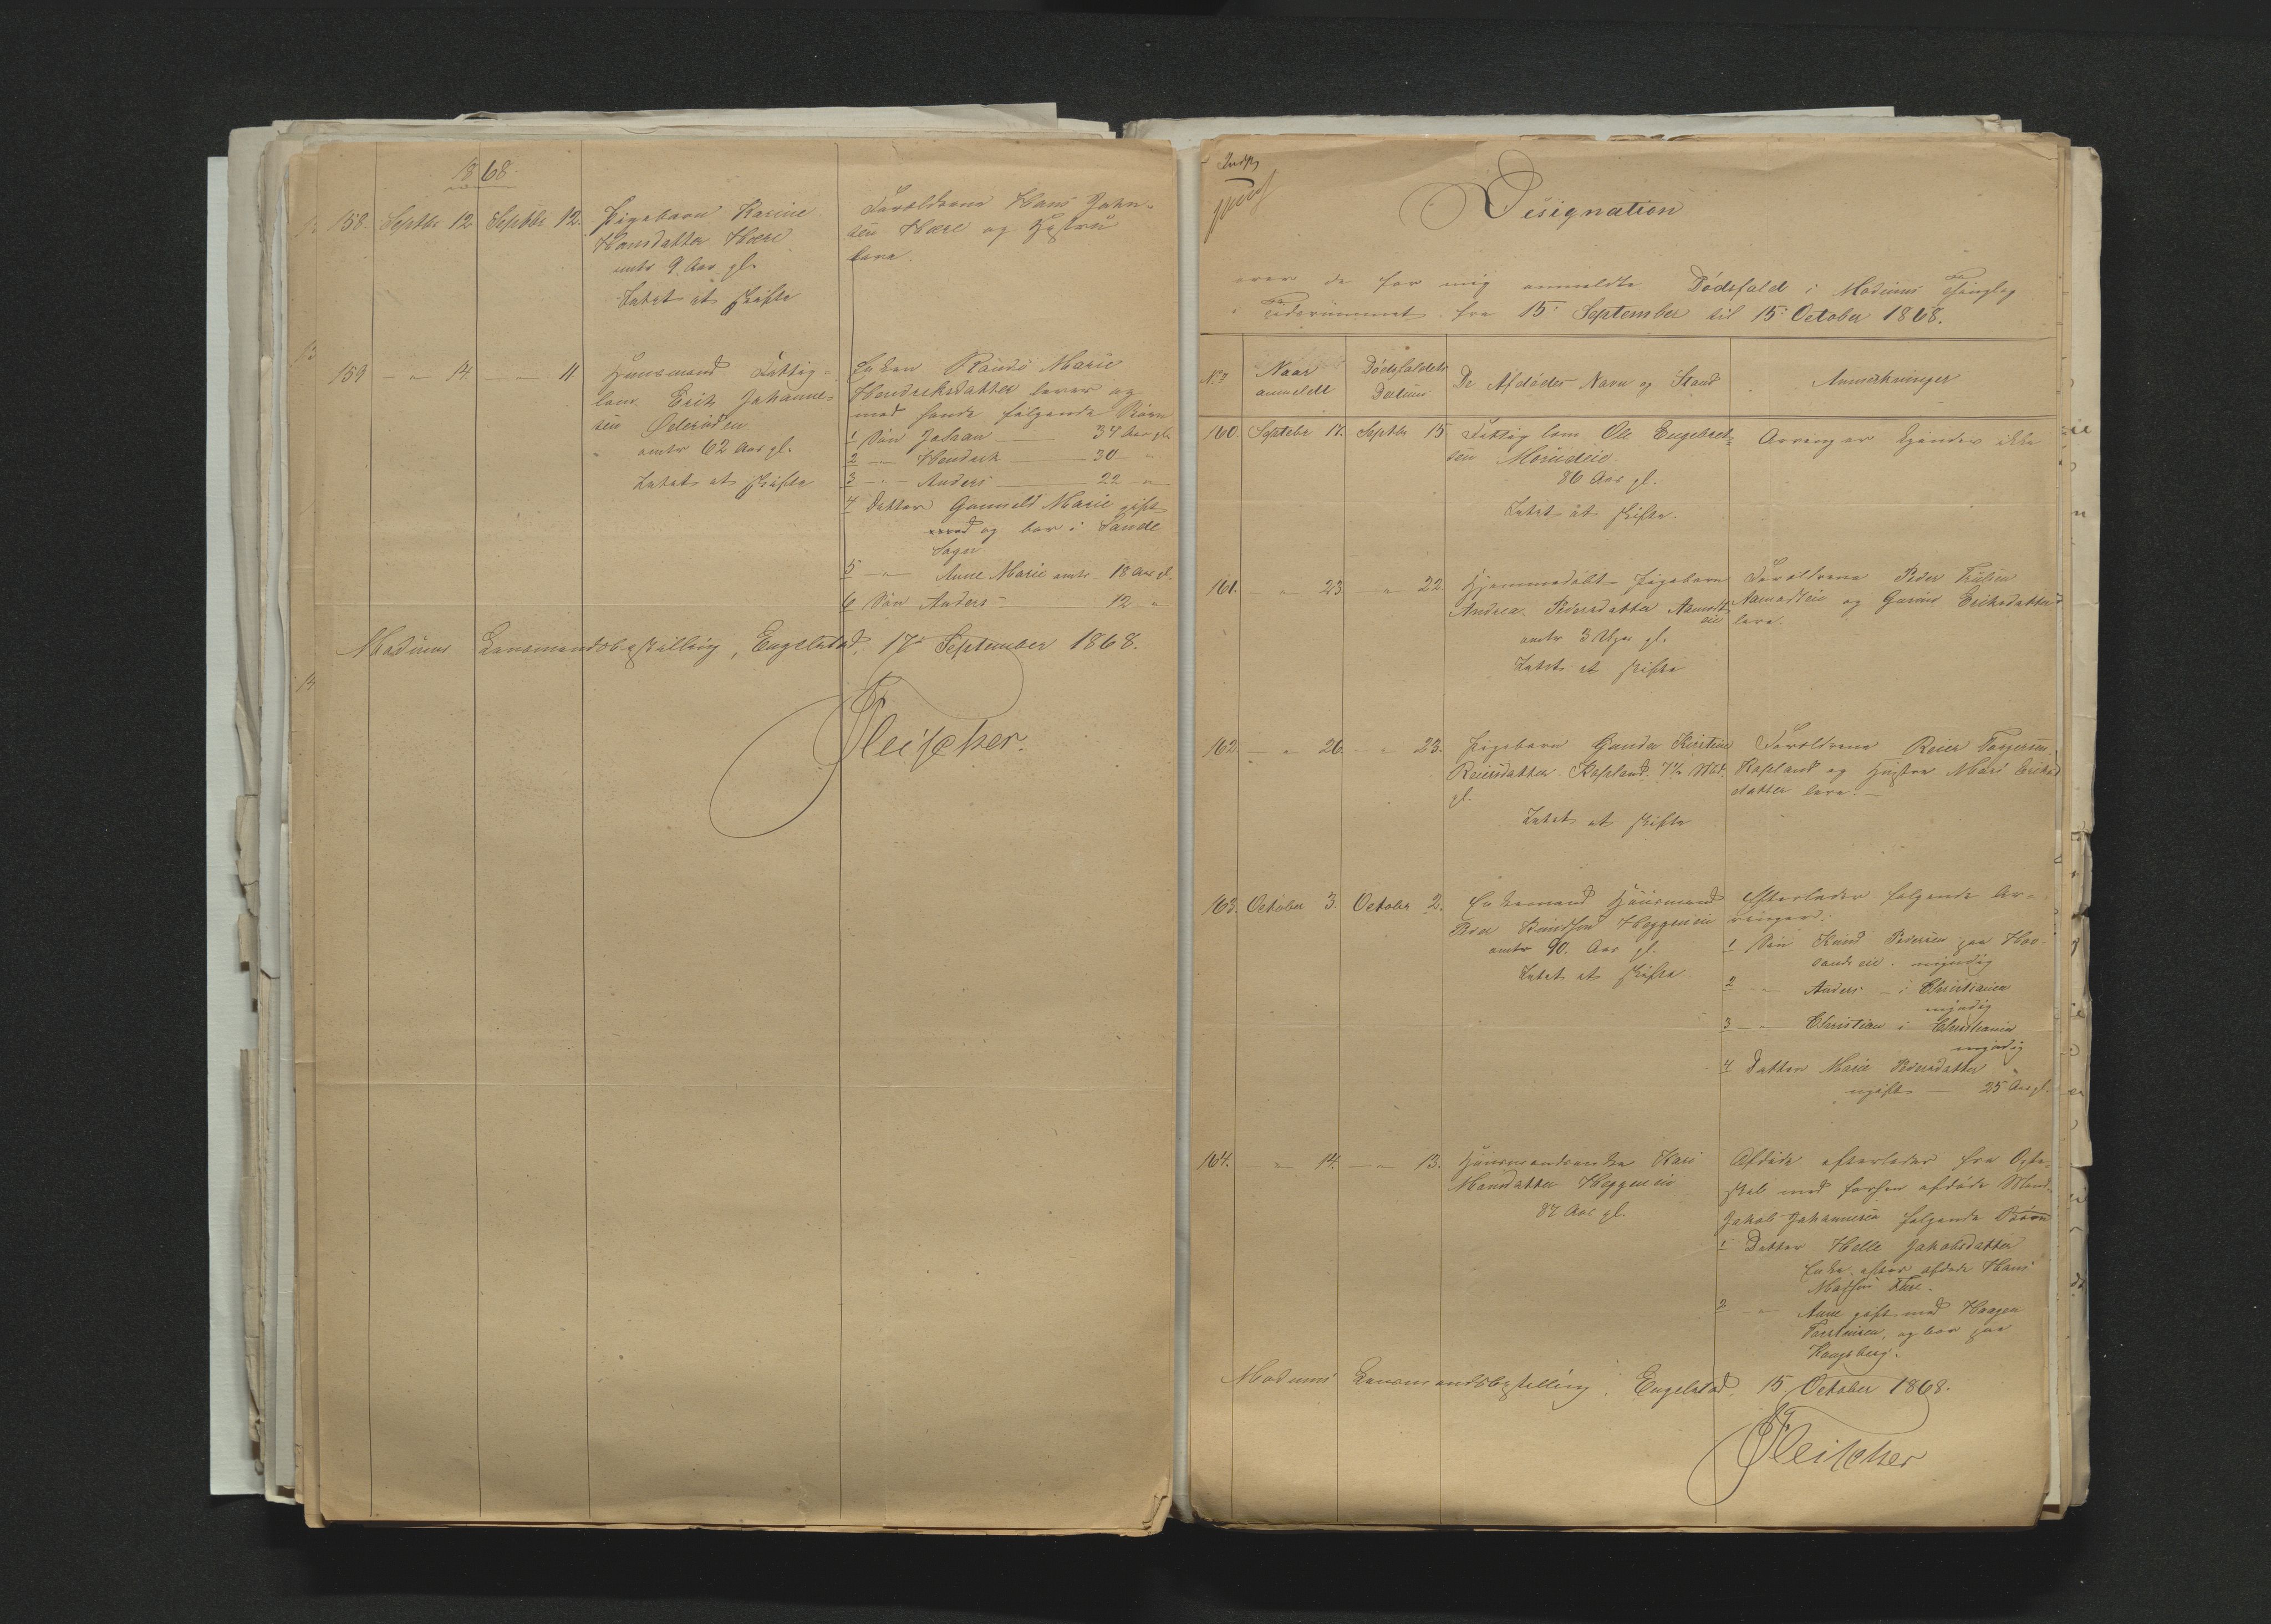 1868
158. Septbr 12 Septbr 12. Pigebarn Karine
Hansdatter Hære
omtr 9 Aar gl.
Intet at skifte
Forældrene Hans John-
sen Hære og Hustru
leve.
159 — " 14. — " 11 Huusmand Fattig-
lem Erik Johanne-
sen
omtr 62 Aar gl.
Intet at skifte
Enken Randi Marie
Hendriksdatter lever og
med hende følgende Børn
1 Søn Johan — 34 Aar gl.
2 — Hendrik — 30 "
3 — " Anders — 22 "
4 Datter Gunnild Marie gift
med og bor i Sande
Sogn
5 — " Anne Marie omtr 18 Aar gl.
6 Søn Anders — 12 "
Modums Lensmandsbestilling, Engelstad, 17 September 1868.
Fleischer.
Designation
over de for mig anmeldte Dødsfald i Modums Thinglag
i Tidsrummet fra 15 September til 15 October 1868.
No Naar anmeldt Dødsfaldets Datum De Afdødes Navn og Stand Anmærkninger
160. Septebr 17. Septbr 15 Fattiglem Ole Engebret-
sen
86 Aar gl.
Intet at skifte.
Arvinger kjendes ikke
161. — " 23. — " 22 Hjemmedøbt Pigebarn
Andrea Pedersdatter Aamodt
eie
omtr 3 Uger gl.
Intet at skifte
Forældrene Peder
Aamodteie og Gurine Eriksdatter
leve.
162. — " 26. — " 23. Pigebarn Gunda Kirstine
Reiersdatter Kopland 7½ Md.
gl.
Intet at skifte
Forældrene Reier Torgersen
Kopland og Hustru Mari Eriks
datter leve. —
163. October 3. October 2. Enkemand Huusmand
Peder Knudsen Heggeneie
omtr 90. Aar gl.
Intet at skifte
Efterlader følgende Ar-
vinger:
1 Søn Knud Pedersen paa Hov-
landeie. myndig
2 — Anders — i Christiania
myndig
3 — " Christian i Christiania
myndig
4 Datter Marie Pedersdatter
ugift — 25 Aar gl.
164. — " 14. — " 13. Huusmandsenke Kari
Monsdatter Heggeneie
87 Aar gl.
Afdøde efterlader fra Ægte-
skab med forhen afdøde Mand
Jakob Johannesen følgende Børn
1 Datter Helle Jakobsdatter
Enke efter afdøde Hans
Madsen
2 — " Anne gift med Haagen
Torstensen, og bor paa
Kongsberg.
Modums Lensmandsbestilling, Engelstad, 15 October 1868.
Fleischer